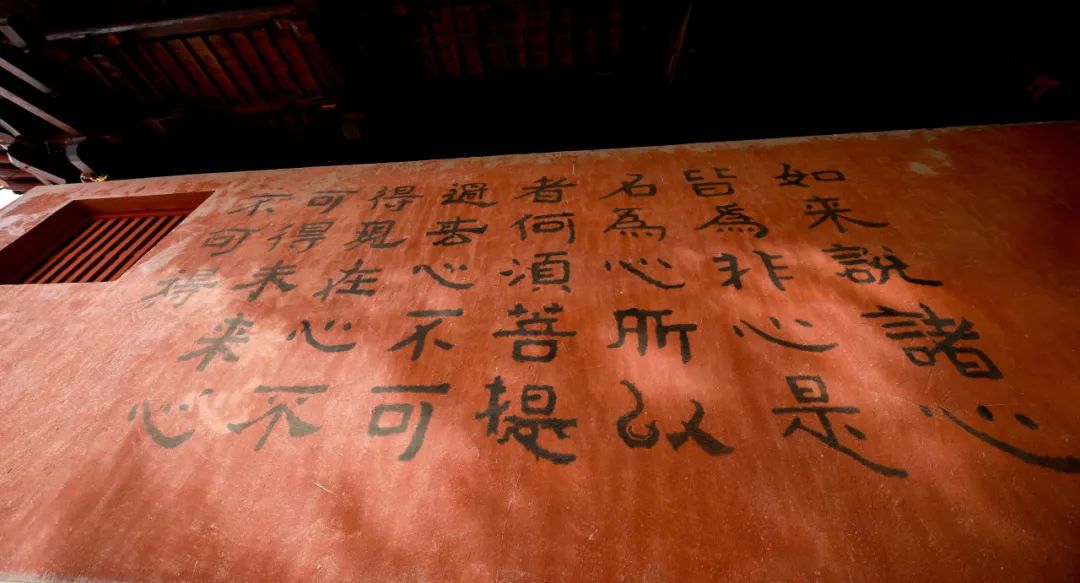 如來說諸心
皆為非心是
名為心所以
者何須菩提
過去心不可
得現在心不
可得未來心
不可得